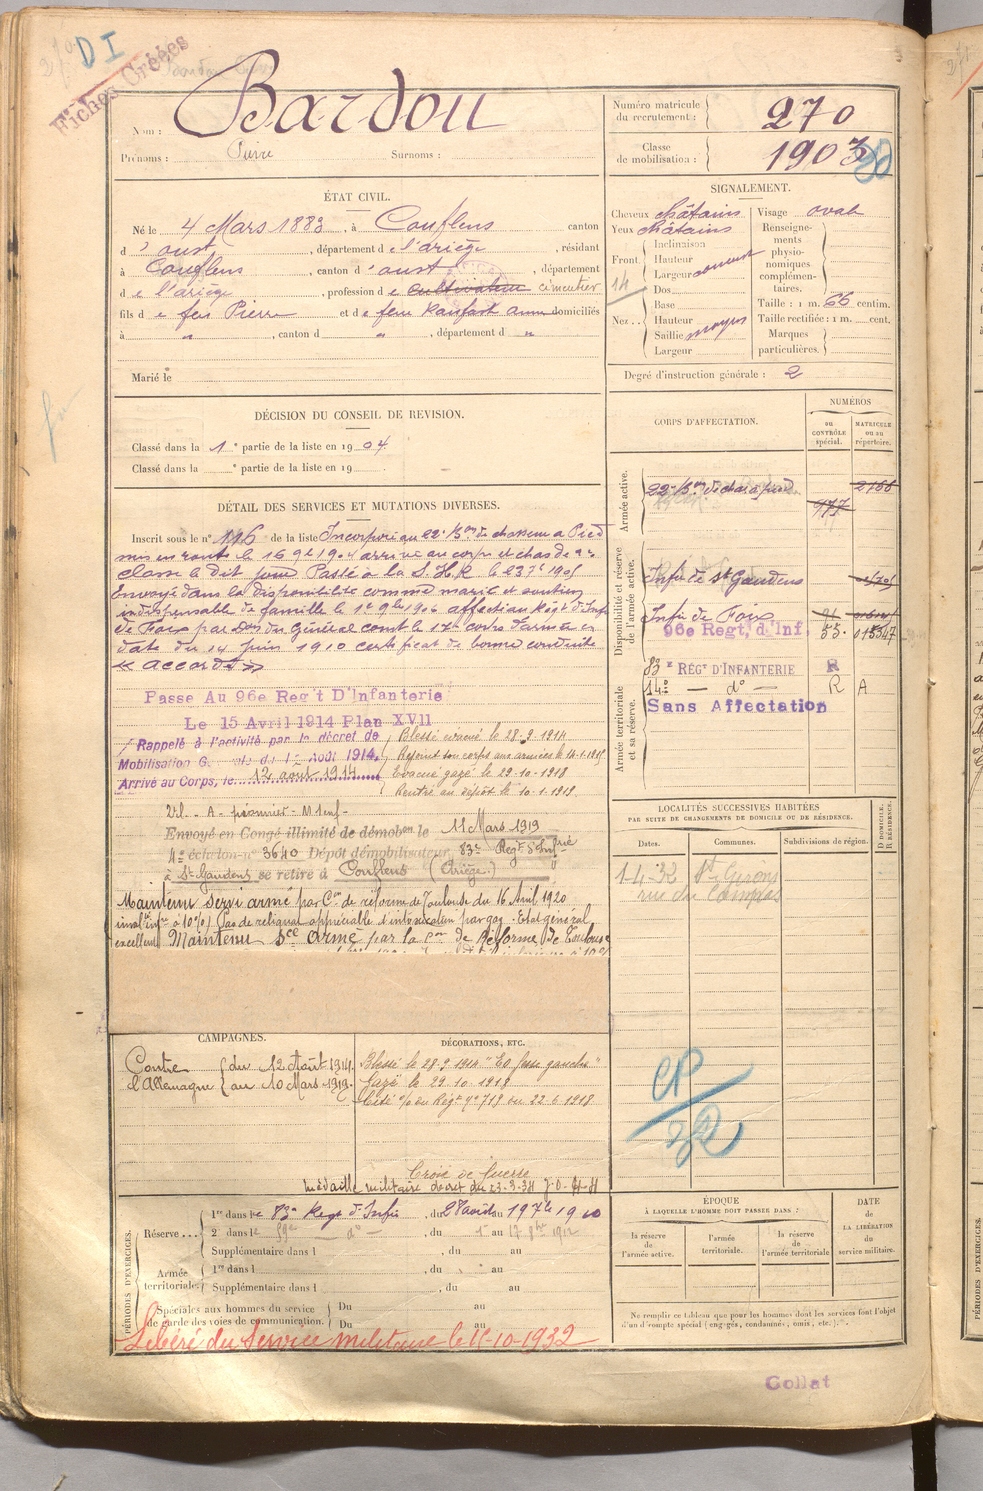 DI
Fiches Créées
Nom : Bardou
Prénoms : Pierre Surnoms :
Numéro matricule du recrutement : 270
Classe de mobilisation : 1903
ÉTAT CIVIL.
Né le 4 Mars 1883, à Couflens canton
d'oust, département de l'ariège, résidant
à Couflens, canton d'oust, département
de l'ariège, profession de cultivateur cimentier
fils de feu Pierre et de feue Ranfast anne domiciliés
à " , canton d " , département d "
Marié le
SIGNALEMENT.
Cheveux châtains Visage ovale
Yeux châtains
Front Inclinaison
Hauteur
Largeur
14
Nez Dos
Base
Hauteur
Saillie moyens
Largeur
Renseignements physionomiques complémentaires.
Taille : 1 m. 66 centim.
Taille rectifiée : 1 m. cent.
Marques particulières.
Degré d'instruction générale : 2
DÉCISION DU CONSEIL DE REVISION.
Classé dans la 1e partie de la liste en 1904.
Classé dans la e partie de la liste en 19
DÉTAIL DES SERVICES ET MUTATIONS DIVERSES.
Inscrit sous le n° 116 de la liste Incorporé au 22e Bon de chasseurs à Pied
mis en route le 16 9bre 1904 arrivé au corps et chas de 2e
classe le dit jour Passé à la S.H.R. le 23 7bre 1905
Envoyé dans la disponibilité comme marié et soutien
indispensable de famille le 1er 9bre 1906 affectation Régt d'Inf
de Foix par Don du Général comt le 17e corps d'armée en
date du 14 juin 1910 certificat de bonne conduite
« accordé »
Passe Au 96e Reg't D'Infanterie
Le 15 Avril 1914 Plan XVII
Rappelé à l'activité par le décret de
Mobilisation G le du 1er Août 1914.
Arrivé au Corps, le 12 août 1914
Blessé évacué le 28-9-1914
Rejoint son corps aux armées le 14-1-1915
Evacué gazé le 29-10-1918
Rentré au dépôt le 10-1-1919.
Envoyé en Congé illimité de démobon le 11 Mars 1919
4e échelon n° 3640 Dépôt démobilisateur 83e Régt d'Infrie
à St Gaudens se retire à Couflens (Ariège.)
Maintenu servi armé par Con de réforme de Toulouse du 16 Avril 1920
invaltė infre à 10% Pas de reliquat appréciable d'intoxication par gaz. Etat général
excellent Maintenu sce armé par la Con de Réforme de Toulouse
CORPS D'AFFECTATION.
NUMÉROS
au CONTRÔLE spécial.
MATRICULE ou au répertoire.
Armée active.
22e Bon de chas à pied 977 2166
Disponibilité et réserve de l'armée active.
Infie de St Gaudens
Infie de Foix
96e Regt, d'Inf. 55. 015347
Armée territoriale et sa réserve.
83e RÉGt D'INFANTERIE R
14e — do — R A
Sans Affectation
LOCALITÉS SUCCESSIVES HABITÉES
PAR SUITE DE CHANGEMENTS DE DOMICILE OU DE RÉSIDENCE.
Dates. Communes. Subdivisions de région. D DOMICILE. R RÉSIDENCE.
1-4-32 St Girons
rue du Campas
CP/32
CAMPAGNES.
Contre l'Allemagne { du 12 Août 1914.
au 10 Mars 1919.
DÉCORATIONS, ETC.
Blessé le 28-9-1914 "Eo fesse gauche"
Gazé le 29.10.1918
Cité o/o du Régt n° 719 du 22-6-1918
Croix de Guerre
médaille militaire décret du 23-3-38
PÉRIODES D'EXERCICES.
Réserve... 1re dans le 83e Régt d'Infie, du 28 avril au 1910
2e dans le 59e do, du 1er au 17 9bre 1912
Supplémentaire dans l , du au
Armée territoriale. 1re dans l , du au
Supplémentaire dans l , du au
Spéciales aux hommes du service de garde des voies de communication. Du au
Du au
Libéré du Service militaire le 15-10-1932
ÉPOQUE
À LAQUELLE L'HOMME DOIT PASSER DANS :
la réserve de l'armée active.
l'armée territoriale.
la réserve de l'armée territoriale
DATE de LA LIBÉRATION du service militaire.
Ne remplir ce tableau que pour les hommes dont les services font l'objet
d'un décompte spécial (engagés, condamnés, omis, etc.).
Collat